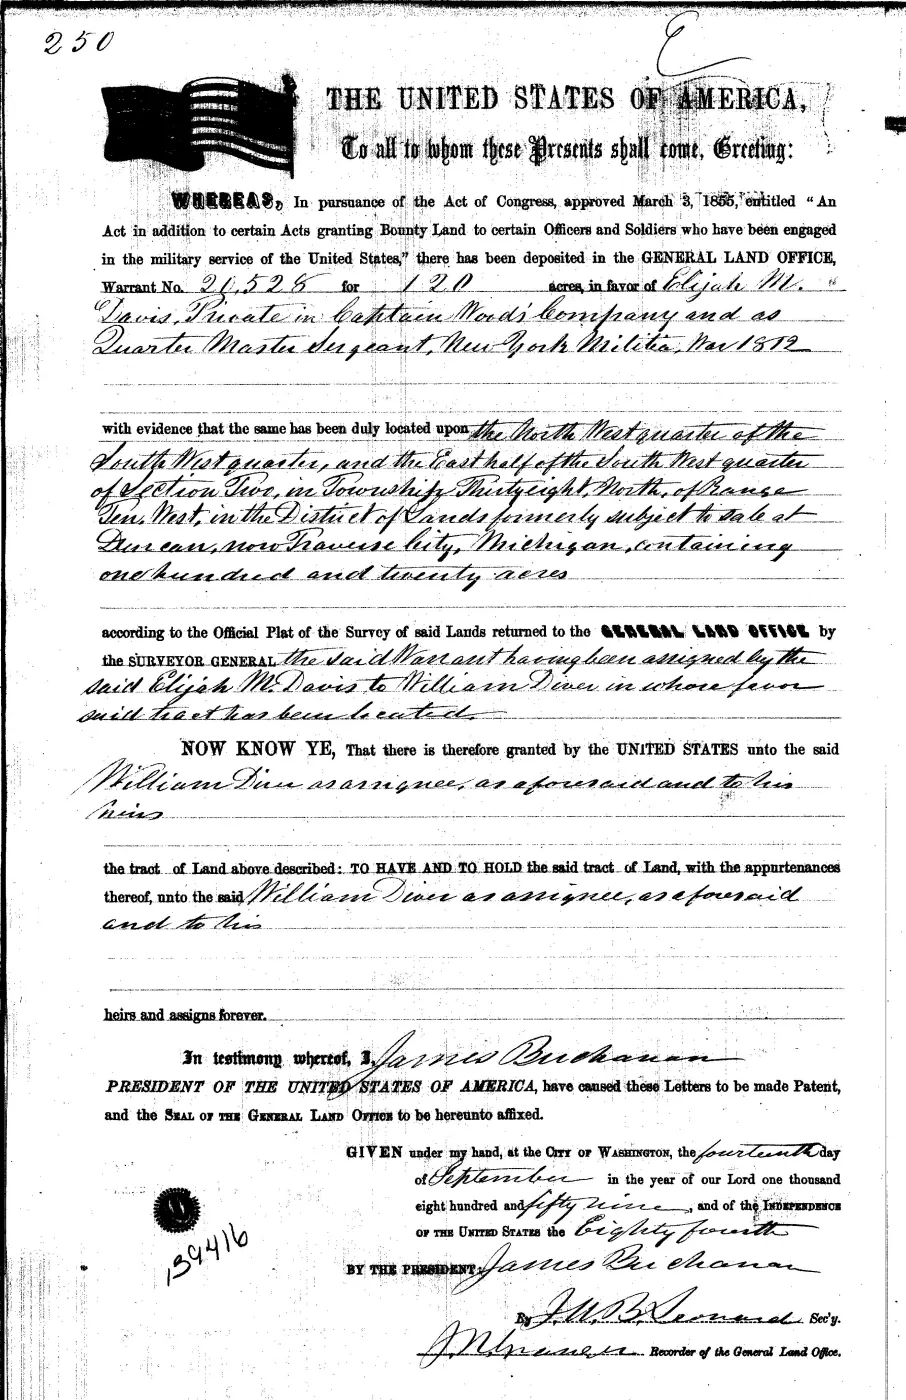 250
THE UNITED STATES OF AMERICA,
To all to whom these Presents shall come, Greeting:
WHEREAS, In pursuance of the Act of Congress, approved March 3, 1855, entitled "An
Act in addition to certain Acts granting Bounty Land to certain Officers and Soldiers who have been engaged
in the military service of the United States," there has been deposited in the GENERAL LAND OFFICE,
Warrant No. 20,528 for 120 acres, in favor of Elijah M.
Davis, Private in Captain Wood's Company and as
Quarter Master Sergeant, New York Militia, War 1812
with evidence that the same has been duly located upon the North West quarter of the
South West quarter, and the East half of the South West quarter
of Section Two, in Township Thirty eight, North, of Range
Ten, West, in the District of Lands formerly subject to sale at
Duncan, now Traverse City, Michigan, containing
one hundred and twenty acres
according to the Official Plat of the Survey of said Lands returned to the GENERAL LAND OFFICE by
the SURVEYOR GENERAL the said Warrant having been assigned by the
said Elijah M. Davis to William Diver in whose favor
said tract has been located.
NOW KNOW YE, That there is therefore granted by the UNITED STATES unto the said
William Diver as assignee, as aforesaid and to his
heirs
the tract of Land above described: TO HAVE AND TO HOLD the said tract of Land, with the appurtenances
thereof, unto the said William Diver as assignee, as aforesaid
and to his
heirs and assigns forever.
In testimony whereof, I, James Buchanan
PRESIDENT OF THE UNITED STATES OF AMERICA, have caused these Letters to be made Patent,
and the SEAL OF THE GENERAL LAND OFFICE to be hereunto affixed.
GIVEN under my hand, at the CITY OF WASHINGTON, the fourteenth day
of September in the year of our Lord one thousand
eight hundred and fifty nine, and of the INDEPENDENCE
OF THE UNITED STATES the Eighty fourth
BY THE PRESIDENT: James Buchanan
By J.W.B. Leonard Sec'y.
J.N. Granger Recorder of the General Land Office.
139416